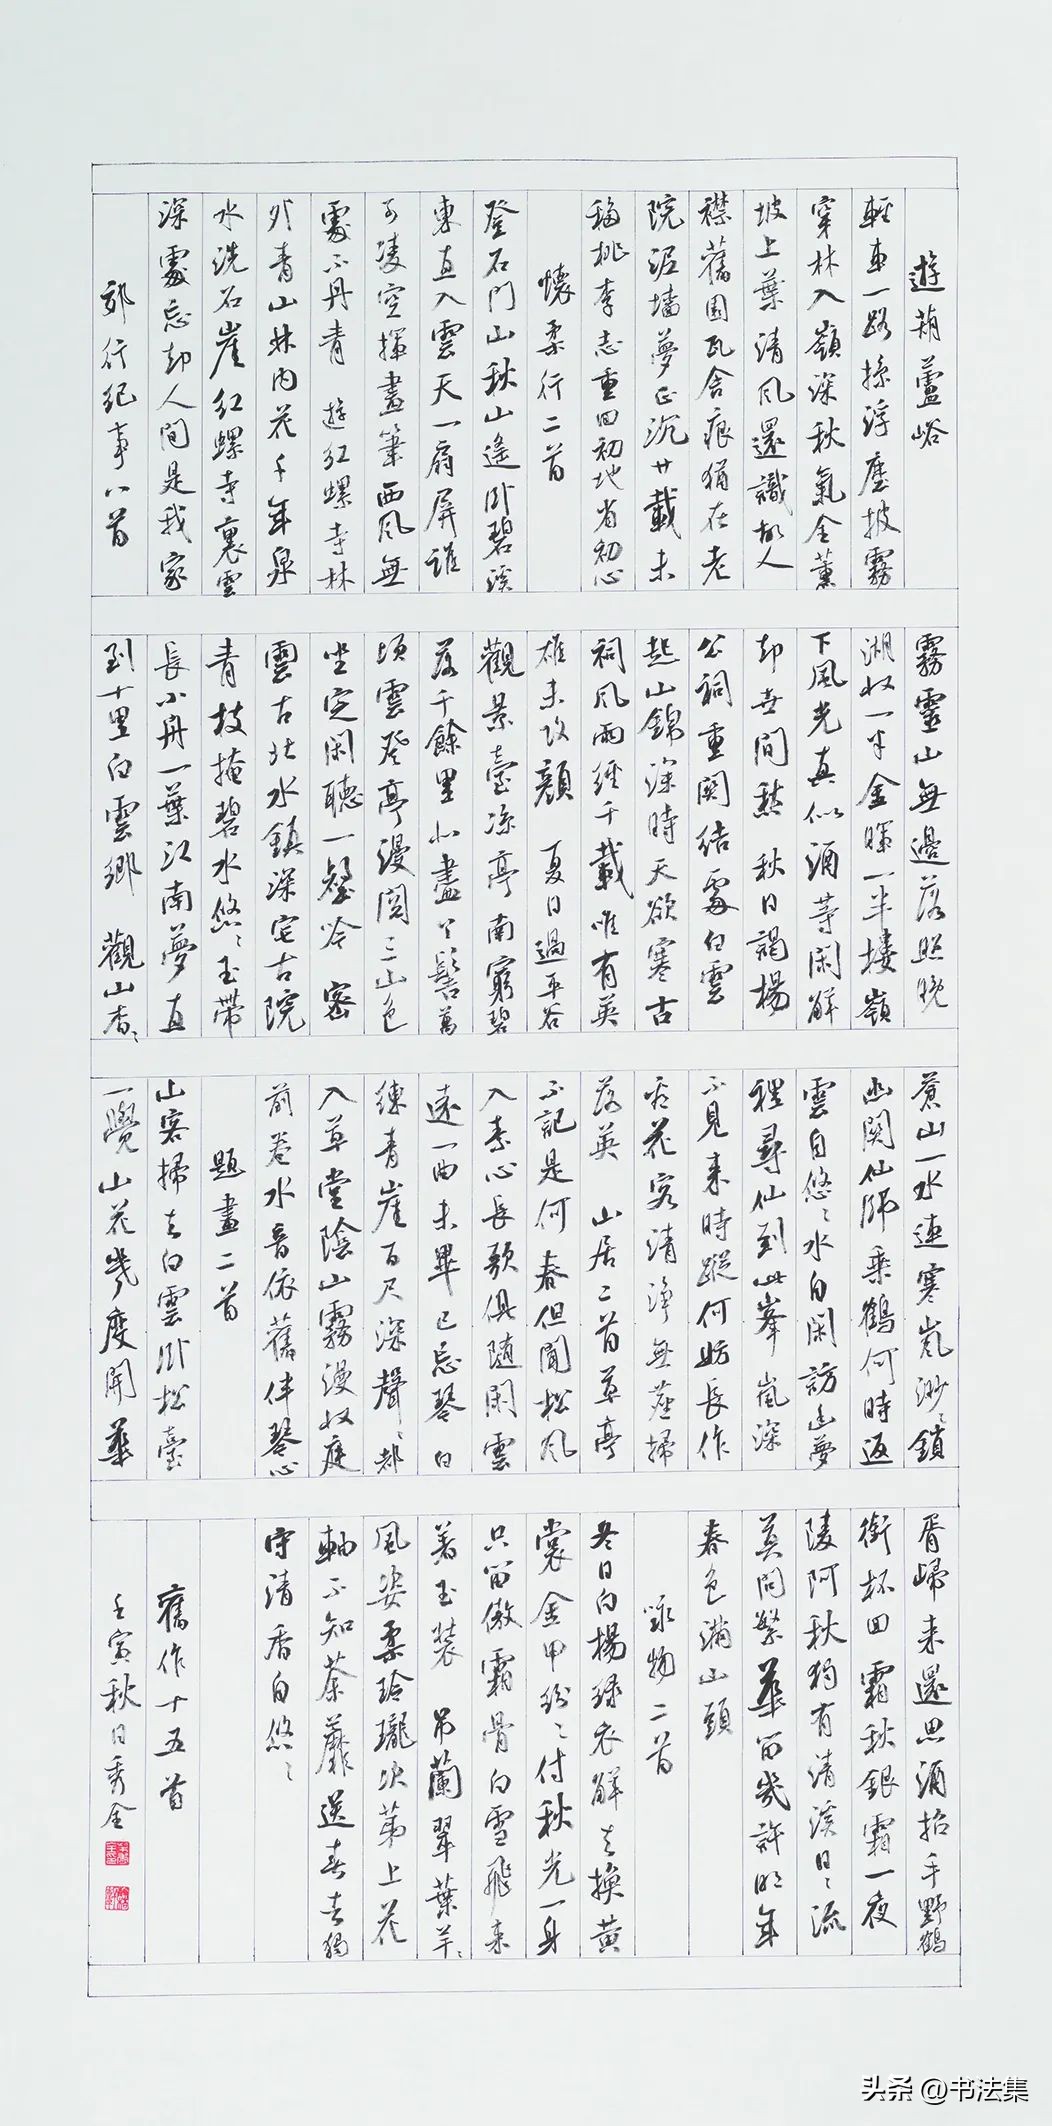 遊葫蘆峪
輕車一路掠浮塵披霧
穿林入嶺深秋氣全薰
坡上葉清風還識故人
襟舊園瓦舍痕猶在老
院泥墻夢正沉廿載未
稱桃李志重回初地省初心
懷柔行二首
登石門山秋山遙卧碧溪
東直入雲天一扇屏誰
可凌空揮畫筆西風無
處不丹青 遊紅螺寺林
外青山林內花千年泉
水洗石崖紅螺寺裏雲
深處忘却人間是我家
郊行紀事八首
霧靈山無邊落照晚
湖收一半金暉一半摟嶺
下風光真似酒等閑解
却世間愁 秋日謁楊
公祠重關結處白雲
起山錦深時天欲寒古
祠風雨經千載唯有英
雄未改顏 夏日過平谷
觀景臺涼亭南窮碧
落千餘里北盡丫髻萬
頃雲登亭漫閱三山色
坐定閑聽一磬吟 密
雲古北水鎮深宅古院
青枝掩碧水悠〻玉帶
長小舟一葉江南夢直
到十里白雲鄉 觀山杏〻
蒼山一水連寒嵐渺〻鎖
幽關仙師乘鶴何時返
雲自悠〻水自閑訪幽夢
裡尋仙到此峯嵐深
不見來時蹤何妨長作
看花客清淨無塵掃
落英 山居二首草亭
不記是何春但聞松風
入素心長歌俱隨閑雲
遠一曲未畢已忘琴 白
練青崖百尺深聲〻都
入草堂陰山霧漫收庭
前卷水音依舊伴琴心
題畫二首
山客掃去白雲卧松臺
一覺山花幾度開華
胥歸來還思酒招手野鶴
銜杯回 霜秋銀霜一夜
陵阿秋獨有清溪日〻流
莫問繁華留幾許明年
春色滿山頭
詠物二首
冬日白楊綠衣解去換黃
裳金甲紛〻付秋光一身
只留傲霜骨白雪飛來
著玉裝 吊蘭翠葉羊〻
風姿柔玲瓏次第上花
軸不知荼蘼送春去獨
守清香自悠〻
舊作十五首
壬寅秋日秀全
头条 @书法集